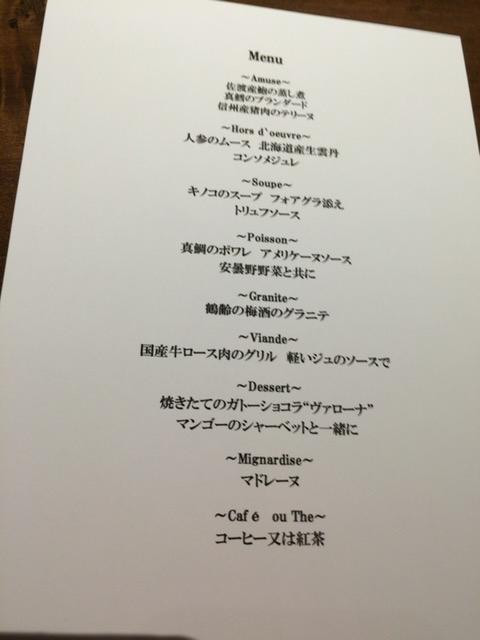 Menu
～Amuse～
佐渡産鮑の蒸し煮
真鱈のブランダード
信州産猪肉のテリーヌ
～Hors d`oeuvre～
人参のムース 北海道産生雲丹
コンソメジュレ
～Soupe～
キノコのスープ フォアグラ添え
トリュフソース
～Poisson～
真鯛のポワレ アメリケーヌソース
安曇野野菜と共に
～Granite～
鶴齢の梅酒のグラニテ
～Viande～
国産牛ロース肉のグリル 軽いジュのソースで
～Dessert～
焼きたてのガトーショコラ“ヴァローナ”
マンゴーのシャーベットと一緒に
～Mignardise～
マドレーヌ
～Café ou The～
コーヒー又は紅茶